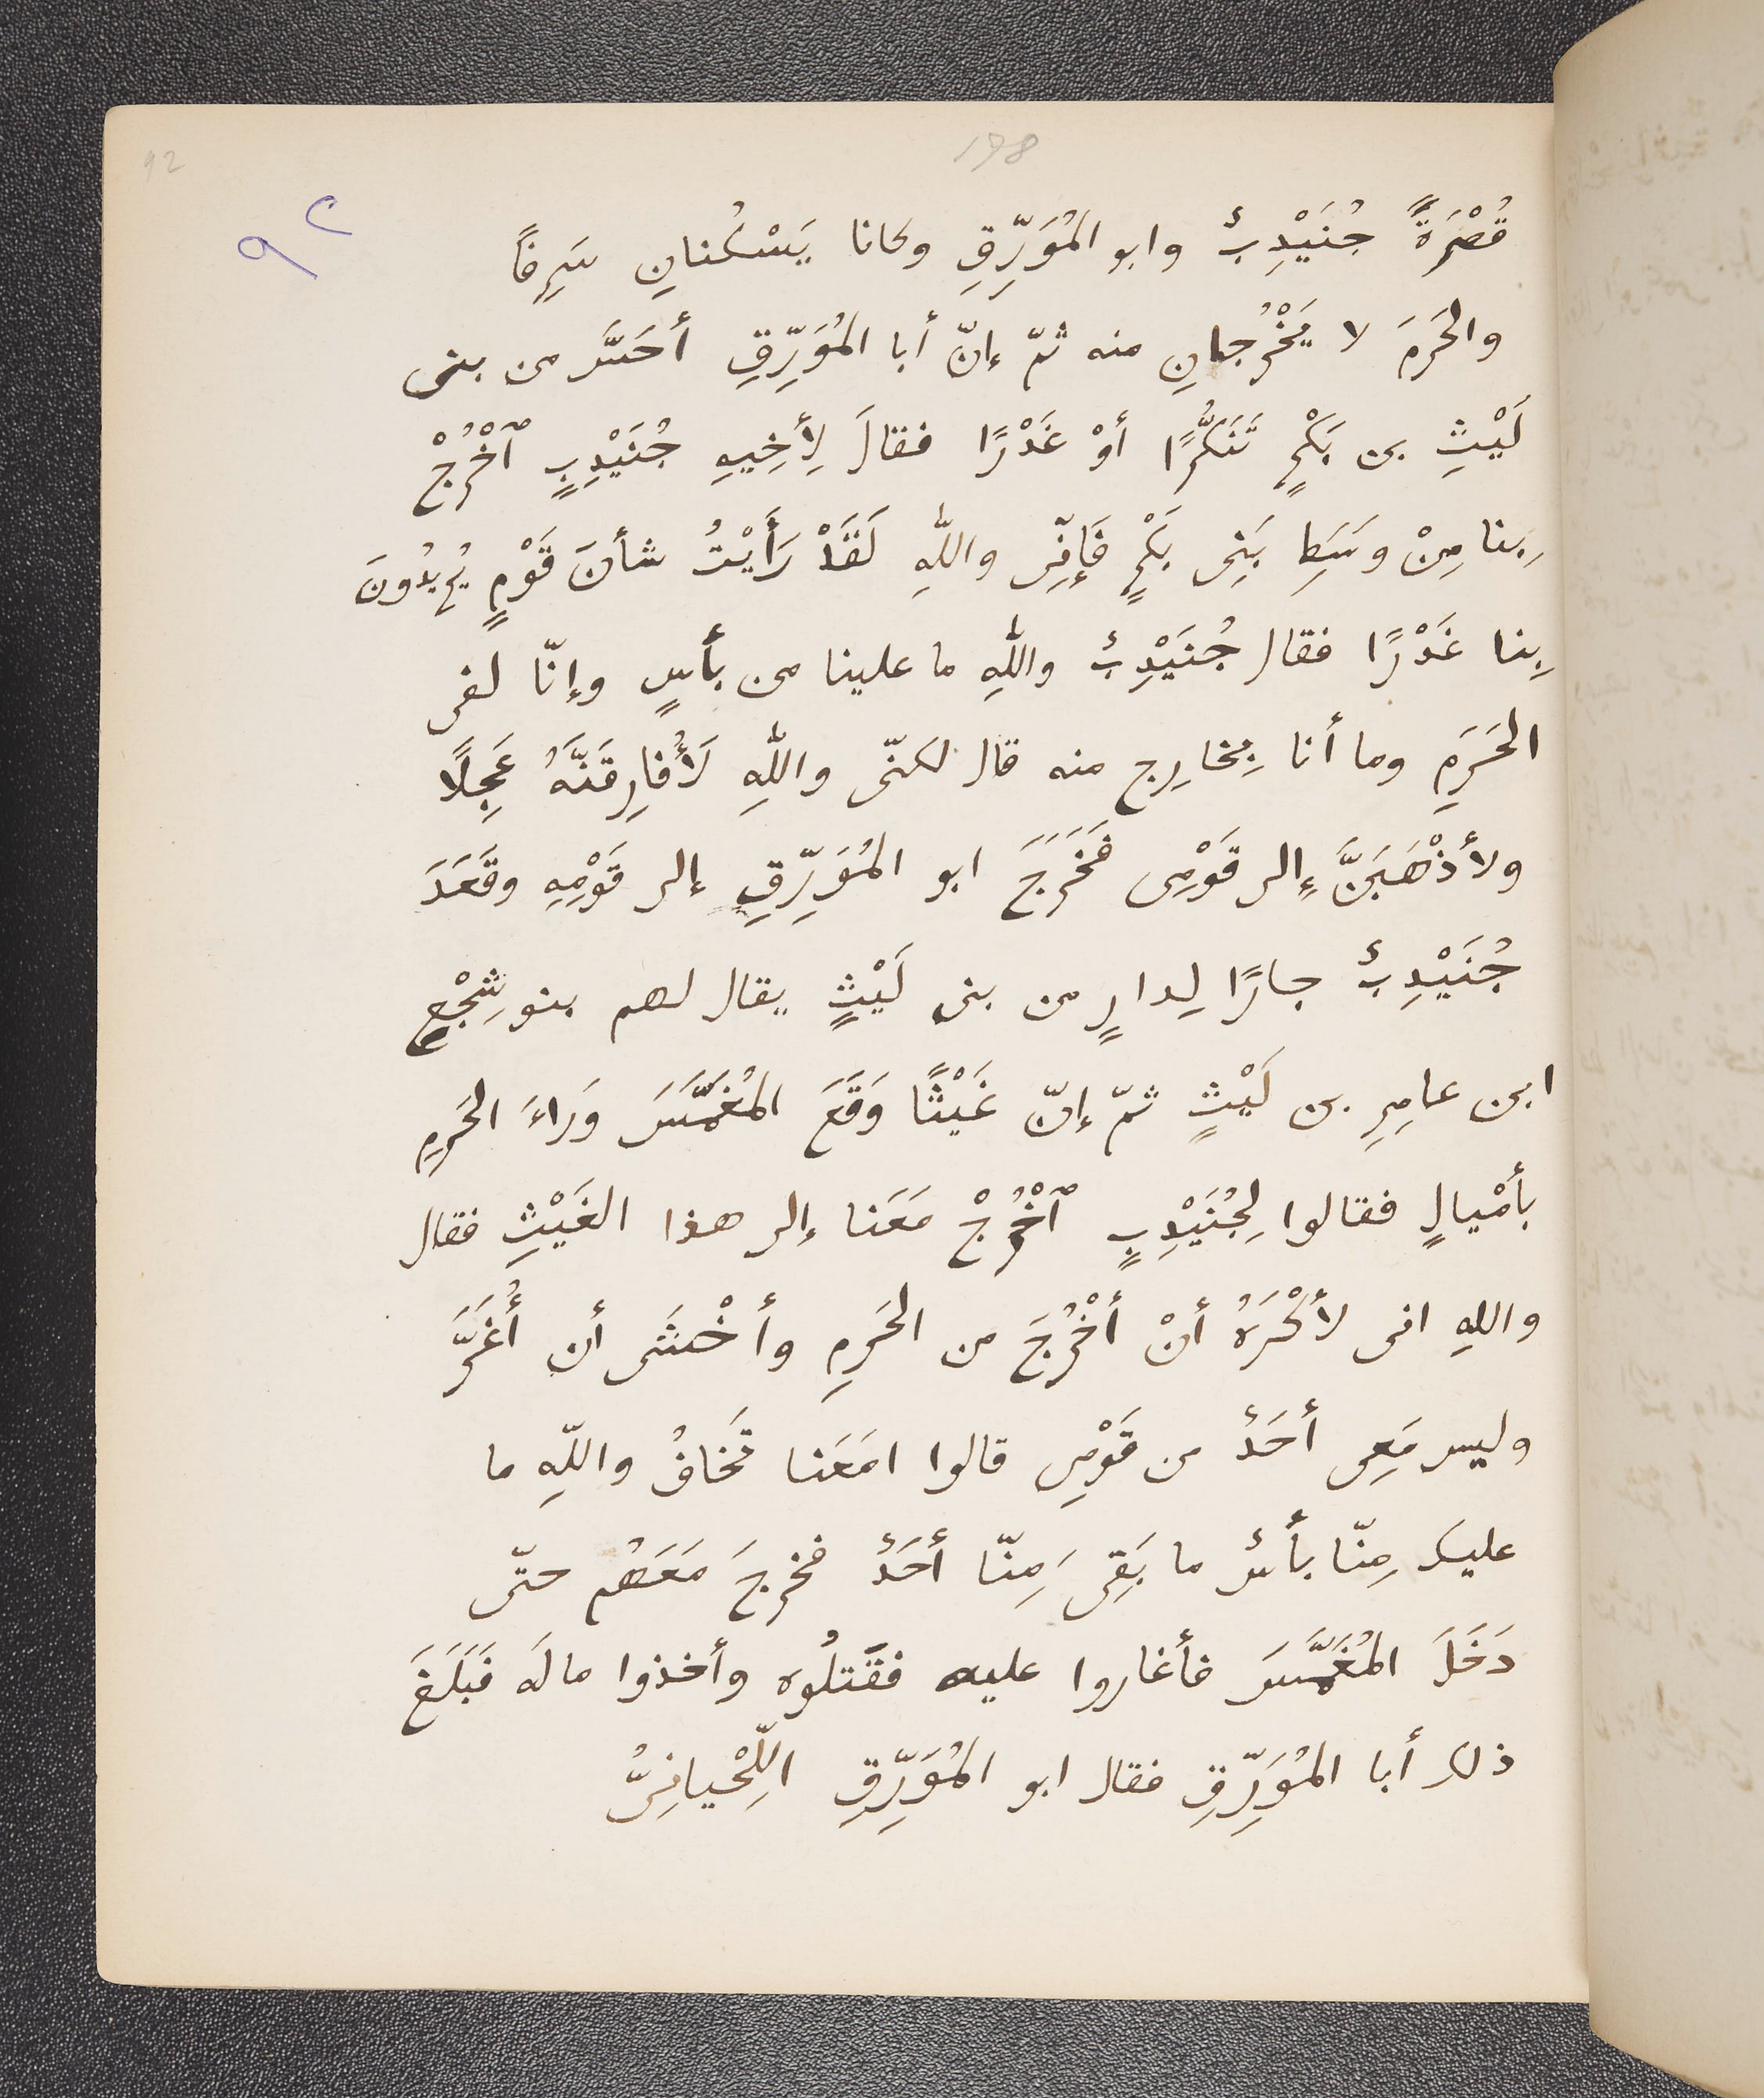 92
198
٩٢
قُصْرَةً جُنَيْدِبٌ وابو المُوَرِّقِ وكانا يَسْكُنانِ سَرِفًا
والحَرَمَ لا يَخْرُجانِ منه ثمّ إنّ أبا المُوَرِّقِ أحَسَّ من بنى
لَيْثِ بن بَكْرٍ تَنَكُّرًا أوْ غَدْرًا فقالَ لِأَخِيهِ جُنَيْدِبٍ ٱخْرُجْ
بِنا مِنْ وسَطِ بَنِى بَكْرٍ فَإِنِّى واللّٰهِ لَقَدْ رَأَيْتُ شأنَ قَوْمٍ يُرِيدُونَ
بِنا غَدْرًا فقال جُنَيْدِبٌ واللّٰهِ ما علينا من بأسٍ وإنّا لفى
الحَرَمِ وما أنا بِخارِج منه قال لكنّى واللّٰهِ لَأُفارِقَنَّهُ عَجِلًا
ولأذْهَبَنَّ إِلى قَوْمِى فَخَرَجَ ابو المُوَرِّقِ إلى قَوْمِهِ وقَعَدَ
جُنَيْدِبٌ جارًا لِدارٍ من بنى لَيْثٍ يقال لهم بنو شِجْعِ
ابن عامِرِ بن لَيْثٍ ثمّ إنّ غَيْثًا وَقَعَ المُغَمَّسَ وَراءَ الحَرَمِ
بأمْيالٍ فقالوا لِجُنَيْدِبٍ ٱخْرُجْ مَعَنا إلى هذا الغَيْثِ فقال
واللهِ انى لأكْرَهُ أنْ أخْرُجَ من الحَرَمِ وأخْشَى أن أُغَرَّ
وليس مَعِى أحَدٌ من قَوْمِى قالوا امَعَنا تَخافُ واللّهِ ما
عليك مِنّا بأسٌ ما بَقِىَ مِنّا أحَدٌ فخرجَ مَعَهُم حتّى
دَخَلَ المُغَمَّسَ فأغاروا عليه فقَتلُوه وأخذوا مالَه فَبَلَغَ
ذلك أبا المُوَرِّقِ فقال ابو المُوَرِّقِ اللِّحْيانِىُّ